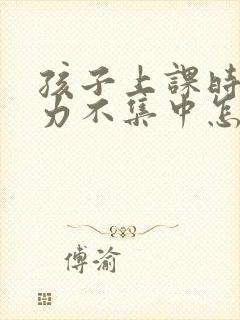 孩子上課時
力不集中怎
傅渝